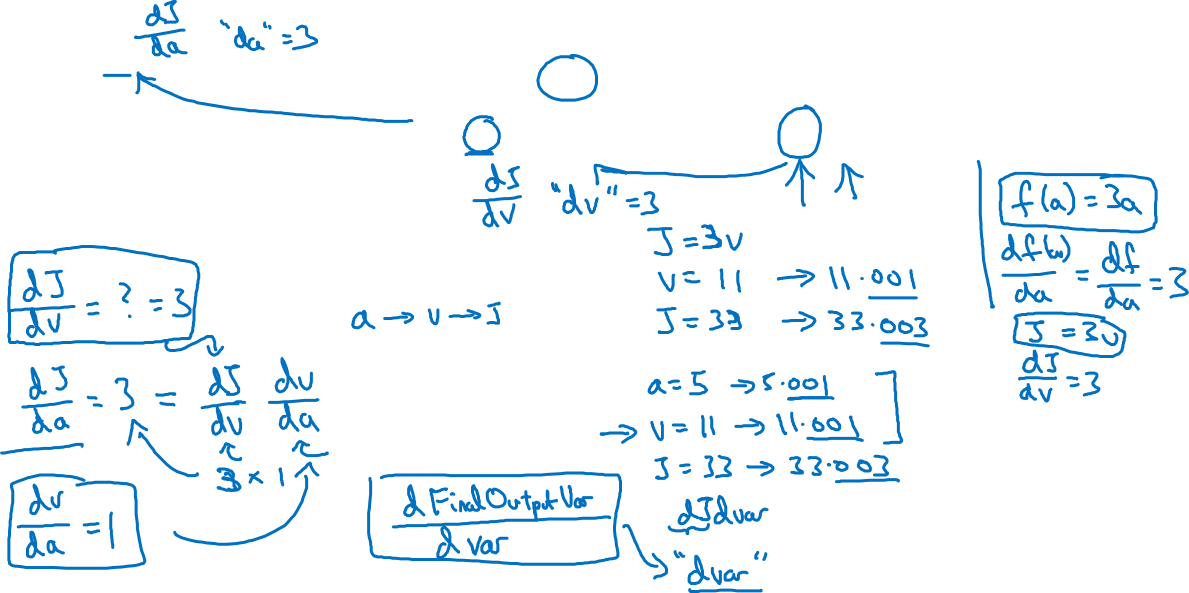 dJ/da "da" = 3
dJ/dv "dv" = 3
J = 3v
v = 11 → 11.001
J = 33 → 33.003
f(a) = 3a
df(a)/da = df/da = 3
J = 3v
dJ/dv = 3
dJ/dv = ? = 3
a → v → J
dJ/da = 3 = dJ/dv dv/da
3 × 1
a = 5 → 5.001
→ v = 11 → 11.001
J = 33 → 33.003
dv/da = 1
d FinalOutputVar / d var
dJdvar
"dvar"